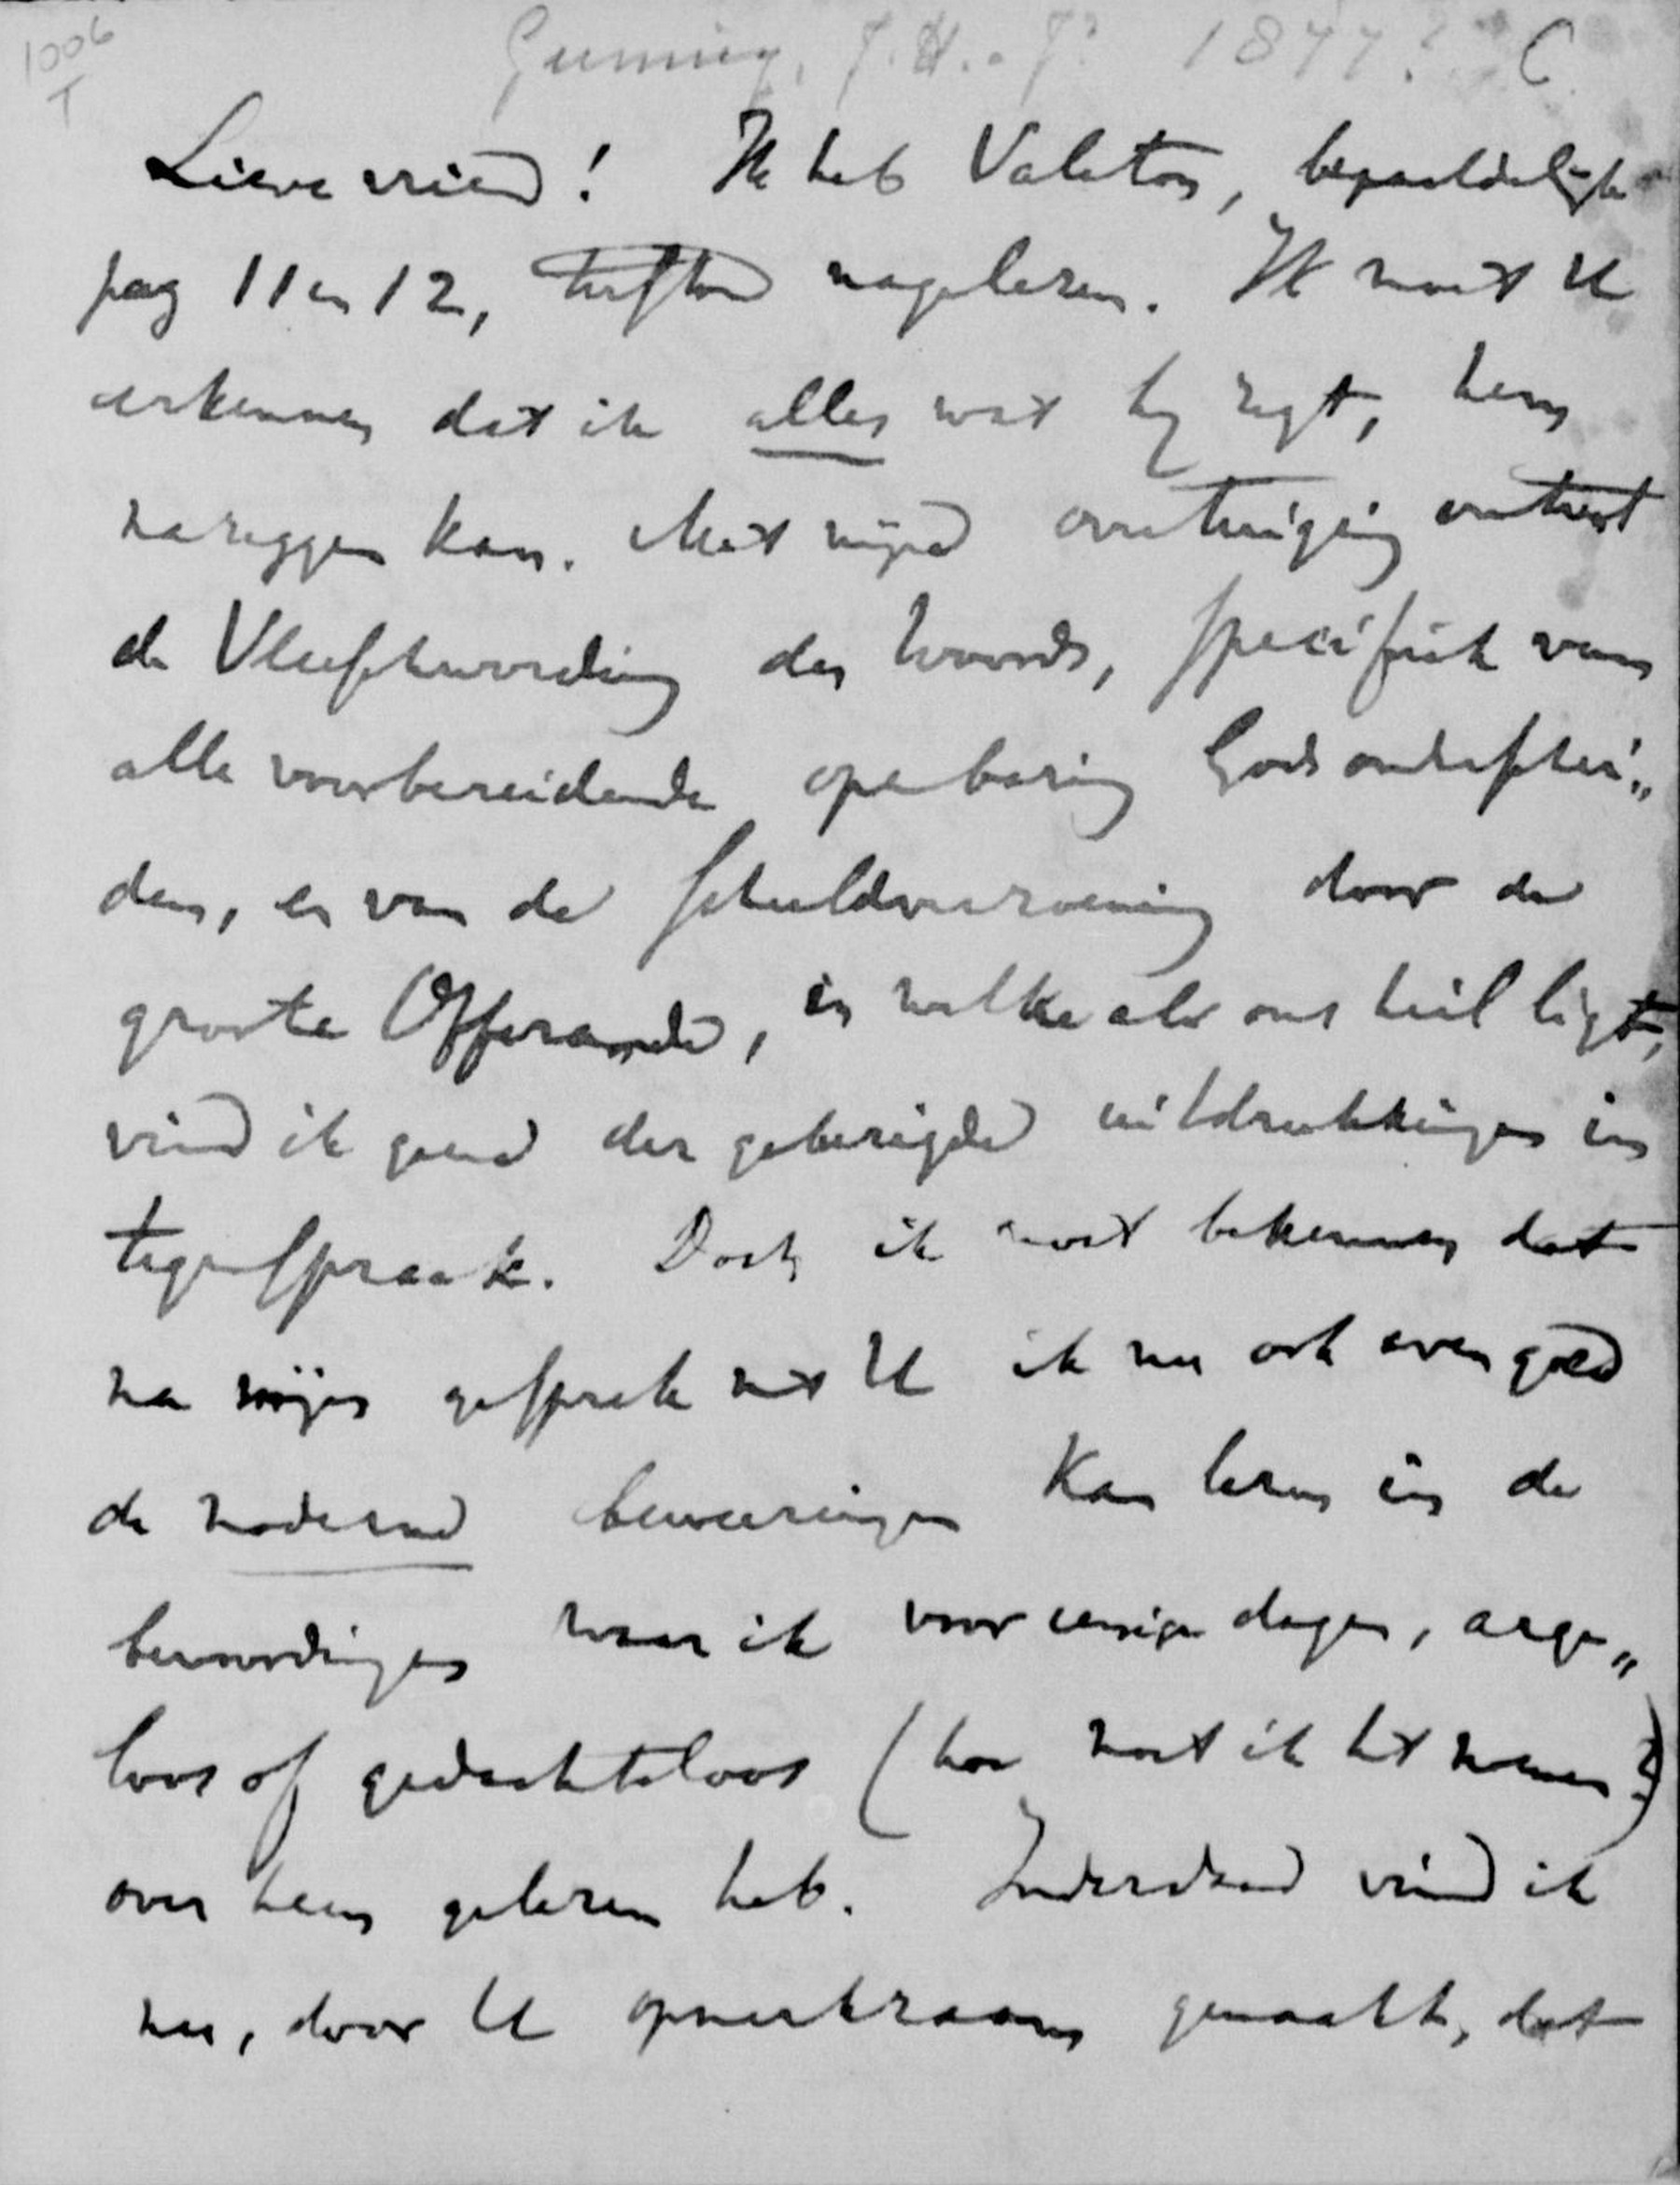 1006
T
Gunning, J.H. Jr 1877? C
Lieve vriend! Ik heb Valeton, bepaaldelijk
pag 11 en 12, nagelezen. Ik moet U
erkennen dat ik alles wat hij zegt, hem
nazeggen kan. Met mijne overtuiging omtrent
de Vleeschwording des Woords, specifiek van
alle voorbereidende openbaring Gods onderschei„
den, en van de schuldverzoening door de
groote Offerande, in welke al ons heil ligt,
vind ik geene der gebezigde uitdrukkingen in
tegenspraak. Doch ik moet bekennen dat
na mijn gesprek met U ik nu ook even goed
de moderne beweeringen kan lezen in de
bewoordingen waar ik voor eenige dagen, arge„
loos of gedachteloos (hoe moet ik het noemen?)
over heen gelezen heb. Inderdaad vind ik
nu, door U opmerkzaam gemaakt, dat